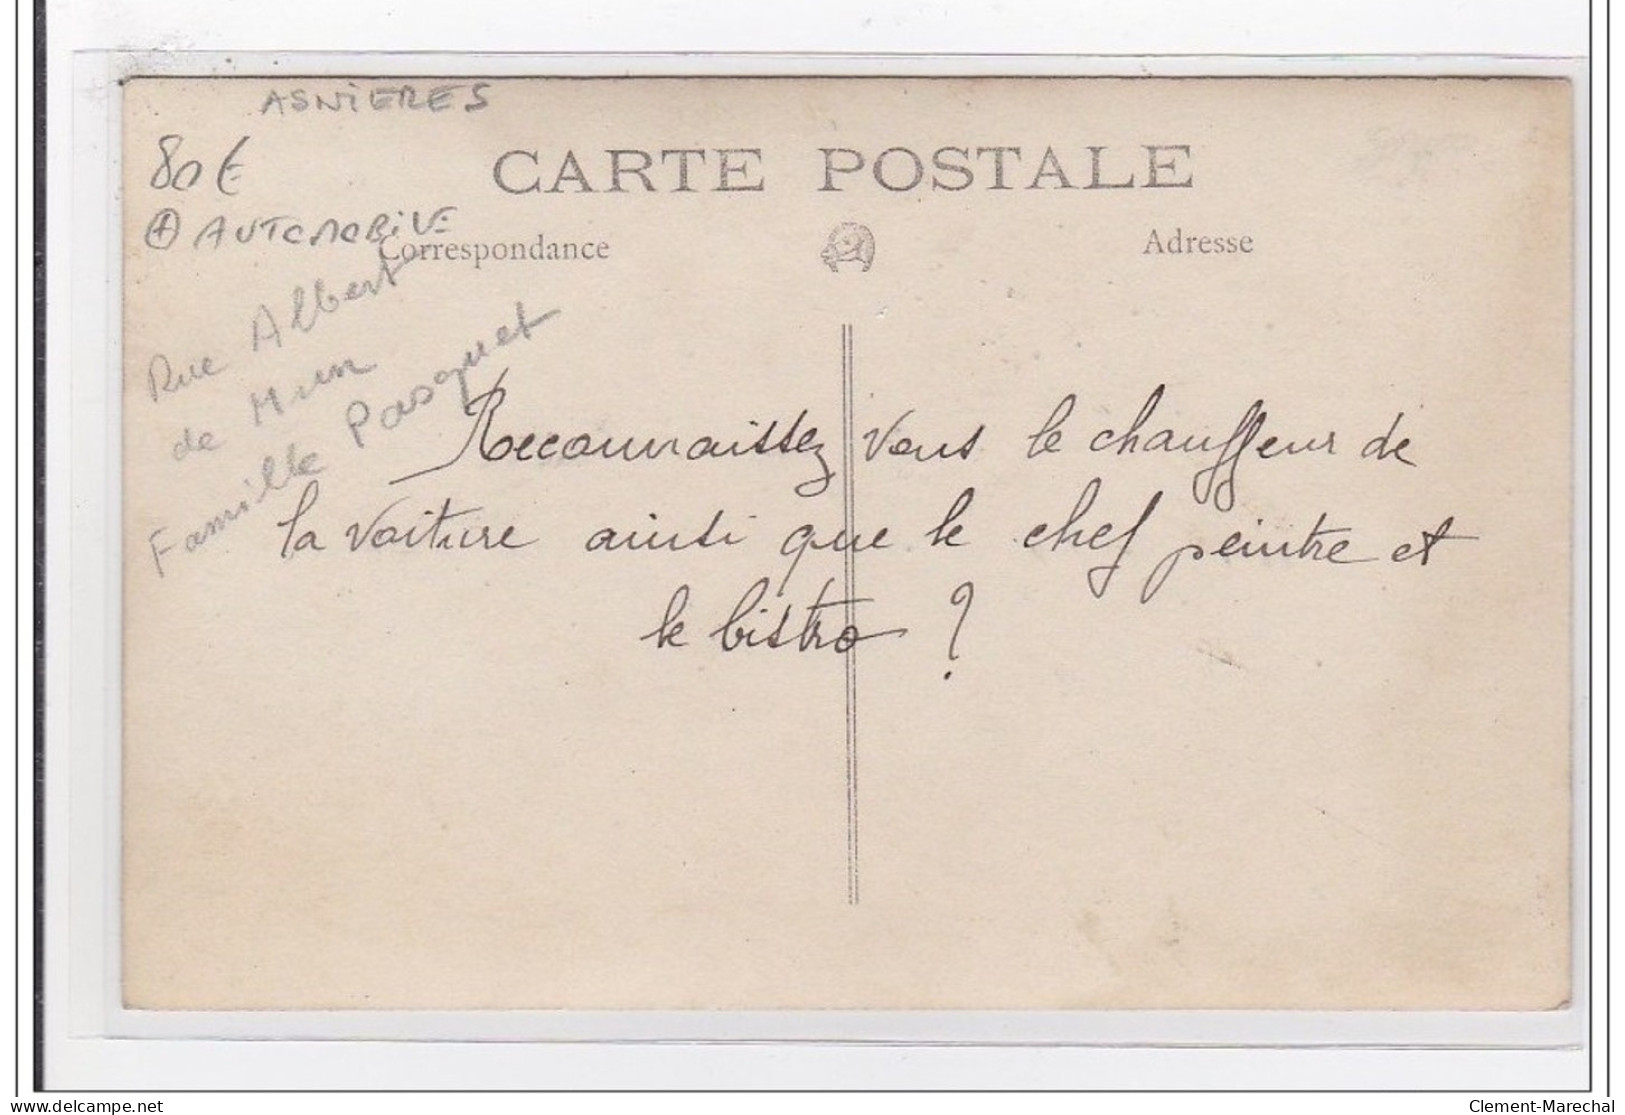 ASNIERES
80€
CARTE POSTALE
+ AUTOMOBILE
Correspondance
Adresse
Rue Albert
de Mun
Famille Pasquet
Reconnaissez vous le chauffeur de
la voiture ainsi que le chef peintre et
le bistro ?
Clement-Marechal
delcampe.net